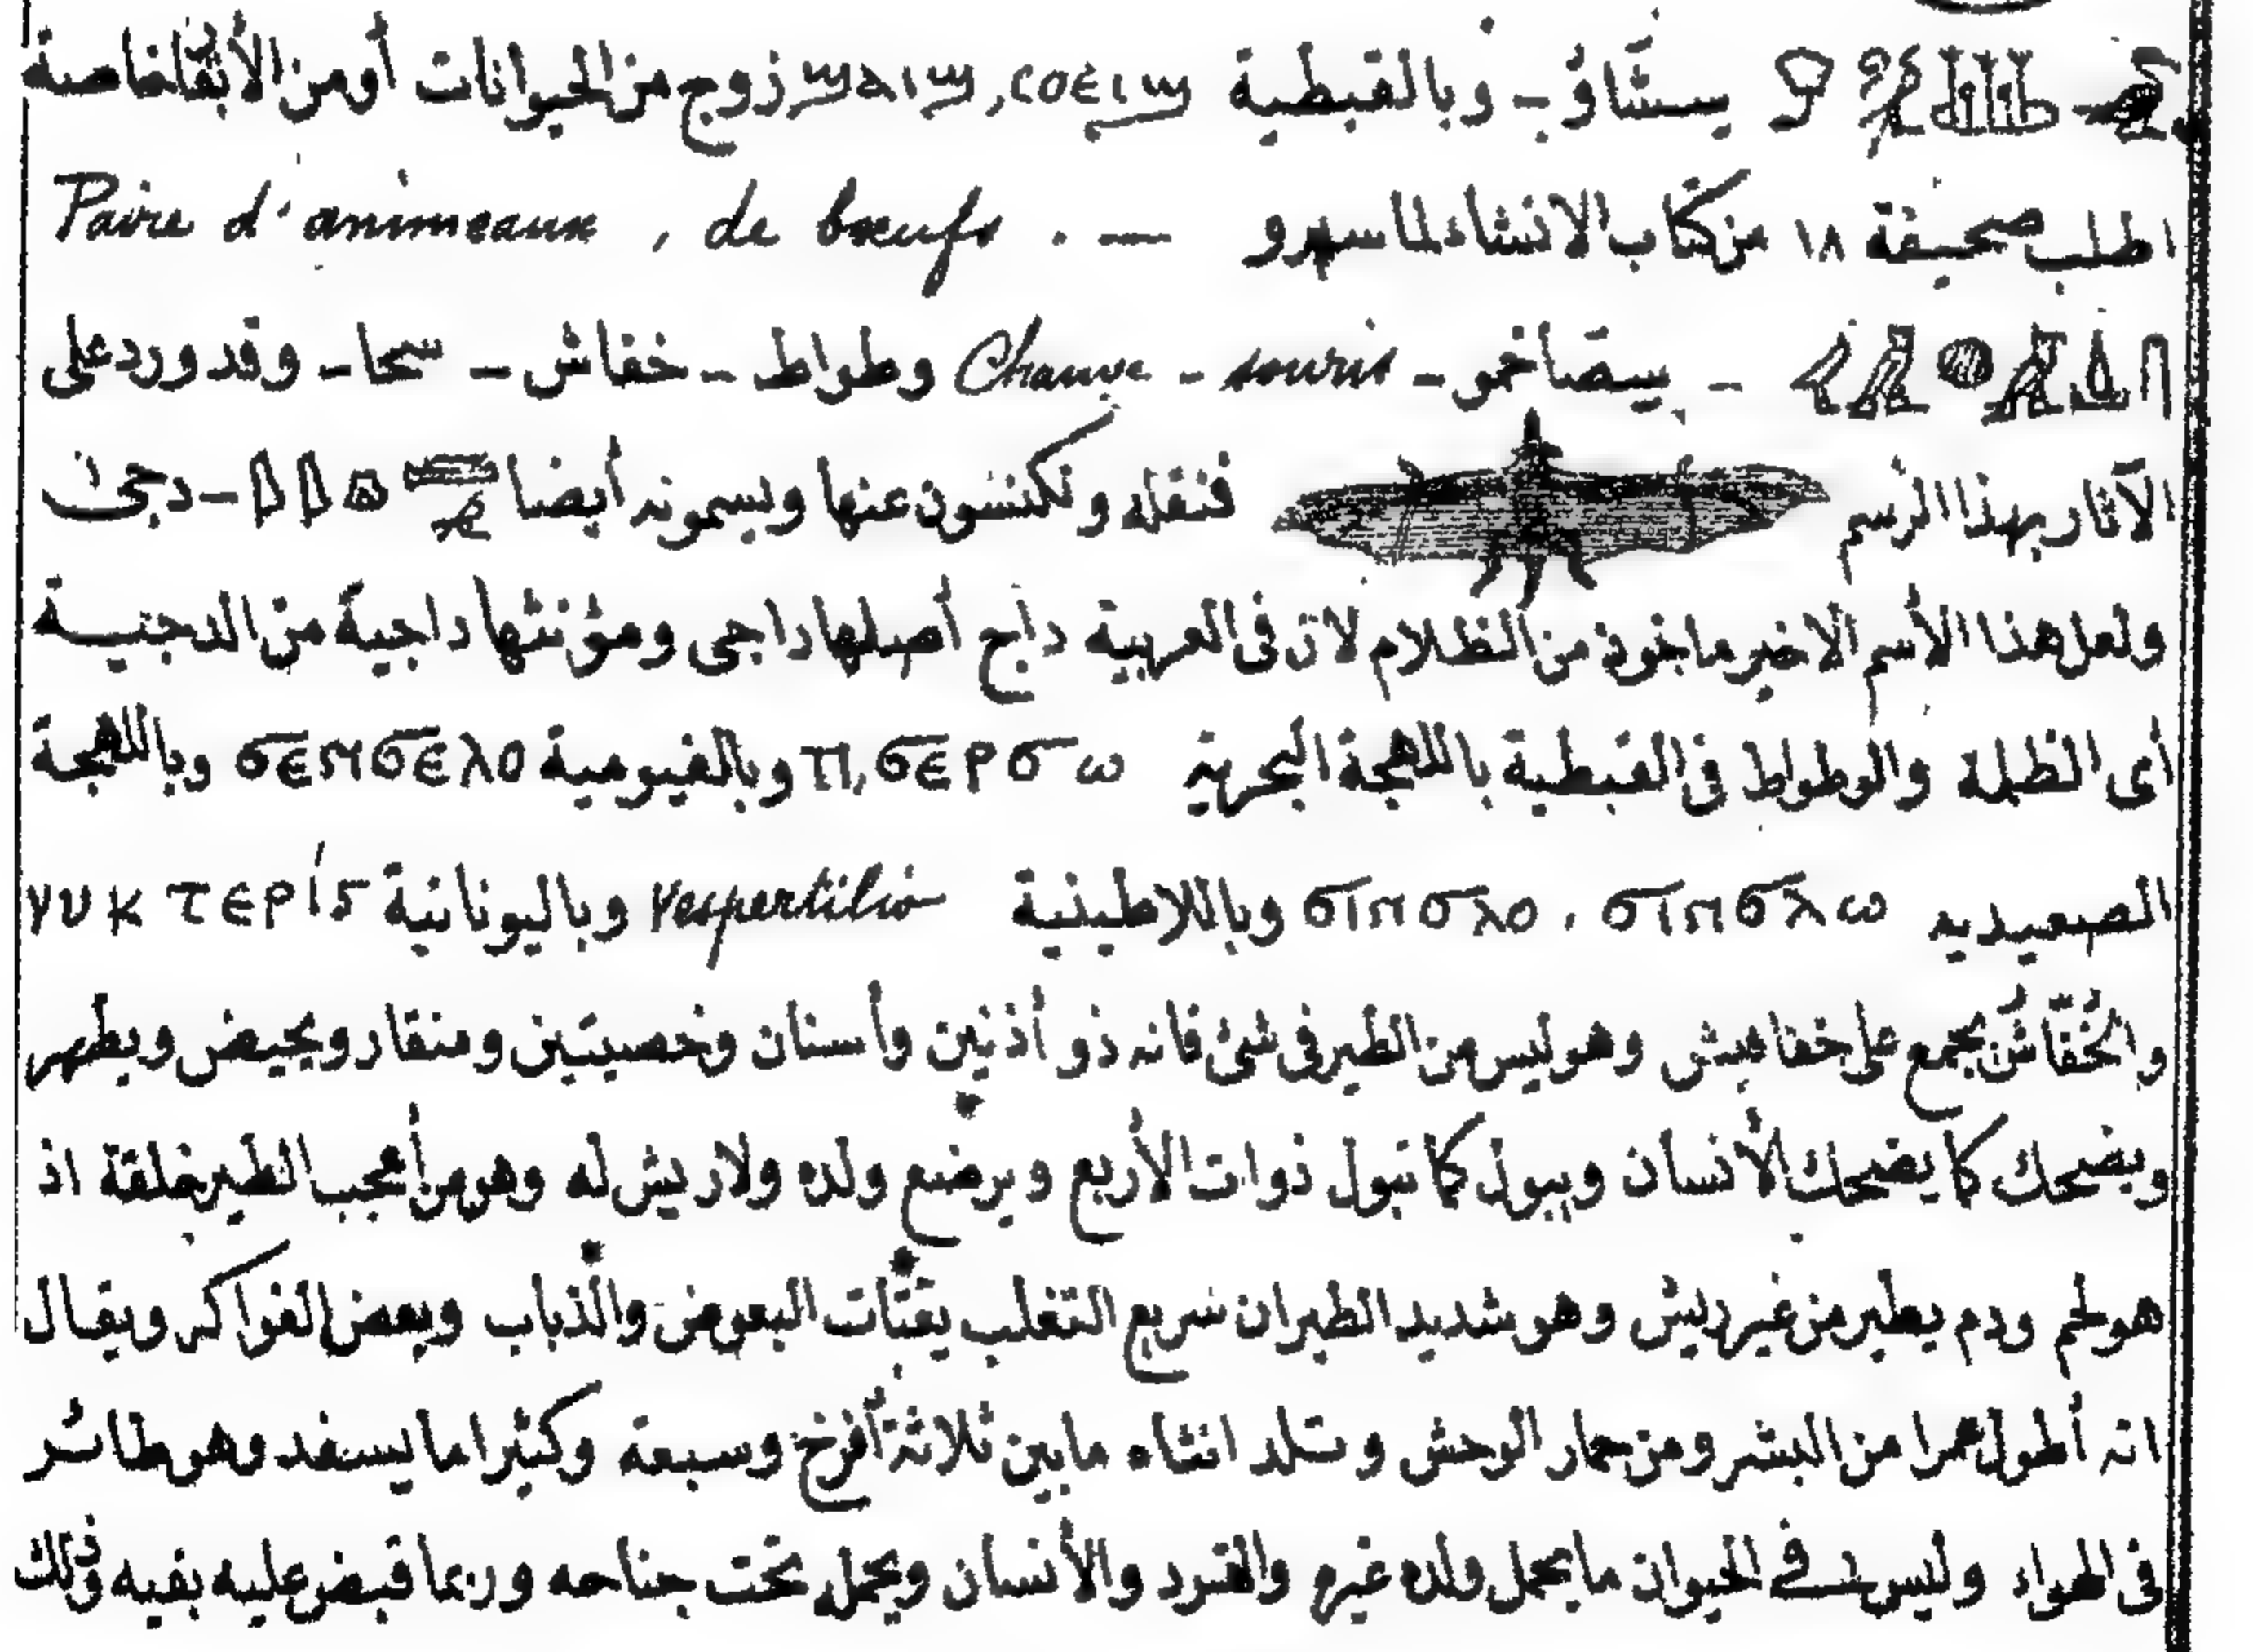 سشَاوُ - وبالقبطية ϣⲁⲓϣ, ⲥⲟⲉⲓϣ زوج من الحيوانات أو من الأبقار خاصة
اطلب صحيفة ١٨ من كتاب الانشاء لماسپرو — Paire d'animeaux, de bœufs.
- سصاخمو - Chauve-souris وطواط - خفاش - سحا - وقد ورد على
الآثار بهذا الرسم فنقله ونكنسون عنها ويسمونه أيضا - دجى
ولعل هذا الأسم الاخير ماخوذ من الظلام لان فى العربية داج أصلها داجى ومؤنثها داجية من الدجنيــة
أى الظلمة والوطواط فى القبطية باللهجة البحريه ⲡⲓ,ϭⲉⲣϭⲱ وبالفيومية ϭⲉⲛϭⲉⲗⲟ وباللهجة
الصعيديه ϭⲓⲛϭⲗⲟ, ϭⲓⲛϭⲗⲱ وباللاطينية Vespertilio وباليونانية νυκτερίς
والخُفّاشُ يجمع على خفافيش وهو ليس من الطير فى شئ فانه ذو أذنين وأسنان وخصيتين ومنقار ويحيض ويطهر
ويضحك كما يضحك الأنسان ويبول كما تبول ذوات الأربع ويرضع ولده ولا ريش له وهو من أعجب الطير خلقة اذ
هو لحم ودم يطير من غير ريش وهو شديد الطيران سريع التقلب يقتات البعوض والذباب وبعض الفواكه ويقال
انه أطول عمرا من البشر ومن حمار الوحش وتلد انثاه ما بين ثلاثة أفرخ وسبعة وكثيرا ما يسفد وهو طائر
فى الهواء وليس فى الحيوان ما يحمل ولده غيره والقرد والأنسان ويحمله تحت جناحه وربما قبض عليه بفيه وذلك